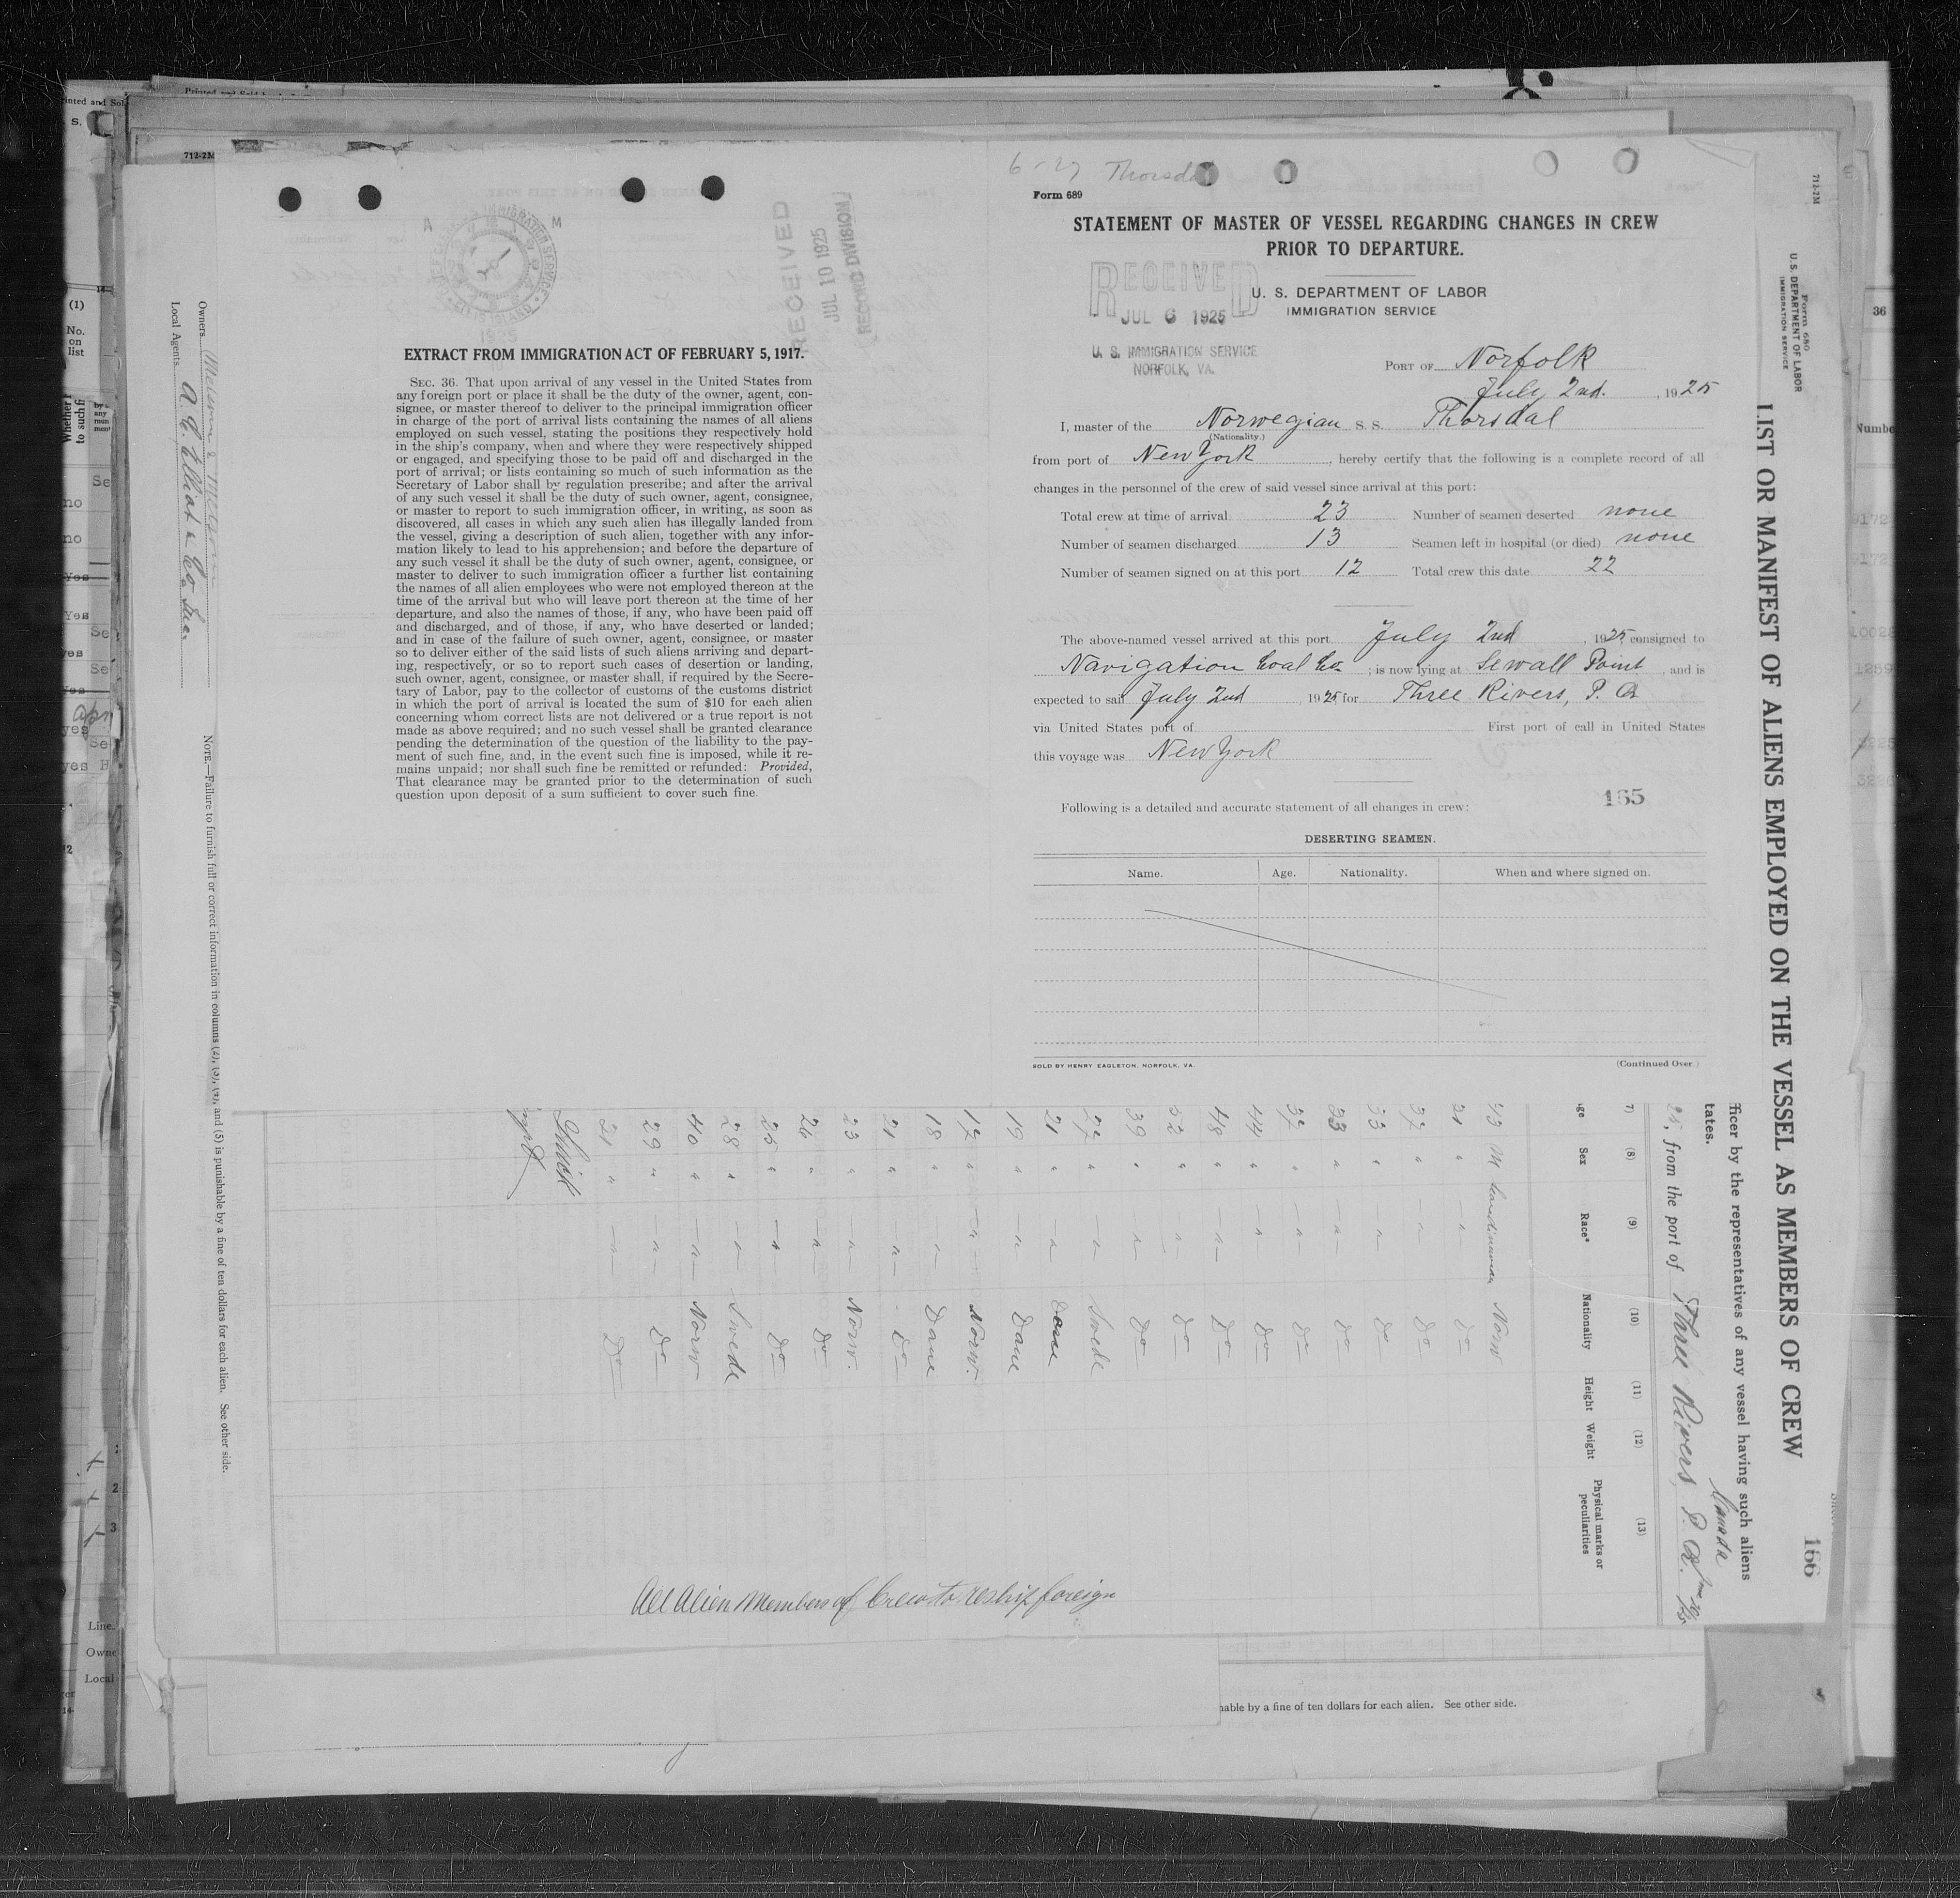 6-27 Thorsdal
Form 689
STATEMENT OF MASTER OF VESSEL REGARDING CHANGES IN CREW
PRIOR TO DEPARTURE.
RECEIVED
JUL 6 1925
U. S. IMMIGRATION SERVICE
NORFOLK, VA.
U. S. DEPARTMENT OF LABOR
IMMIGRATION SERVICE
PORT OF Norfolk
July 2nd. , 1925
I, master of the Norwegian S. S. Thorsdal
(Nationality.)
from port of New York , hereby certify that the following is a complete record of all
changes in the personnel of the crew of said vessel since arrival at this port:
Total crew at time of arrival 23 Number of seamen deserted none
Number of seamen discharged 13 Seamen left in hospital (or died) none
Number of seamen signed on at this port 12 Total crew this date 22
The above-named vessel arrived at this port July 2nd , 1925 consigned to
Navigation Coal Co ; is now lying at Sewall Point , and is
expected to sail July 2nd , 1925, for Three Rivers, P. Q.
via United States port of First port of call in United States
this voyage was New York
Following is a detailed and accurate statement of all changes in crew:
165
DESERTING SEAMEN.
Name. Age. Nationality. When and where signed on.
SOLD BY HENRY EAGLETON, NORFOLK, VA.
(Continued Over)
RECEIVED
JUL 10 1925
RECORD DIVISION
A M
1925
EXTRACT FROM IMMIGRATION ACT OF FEBRUARY 5, 1917.
SEC. 36. That upon arrival of any vessel in the United States from
any foreign port or place it shall be the duty of the owner, agent, con-
signee, or master thereof to deliver to the principal immigration officer
in charge of the port of arrival lists containing the names of all aliens
employed on such vessel, stating the positions they respectively hold
in the ship's company, when and where they were respectively shipped
or engaged, and specifying those to be paid off and discharged in the
port of arrival; or lists containing so much of such information as the
Secretary of Labor shall by regulation prescribe; and after the arrival
of any such vessel it shall be the duty of such owner, agent, consignee,
or master to report to such immigration officer, in writing, as soon as
discovered, all cases in which any such alien has illegally landed from
the vessel, giving a description of such alien, together with any infor-
mation likely to lead to his apprehension; and before the departure of
any such vessel it shall be the duty of such owner, agent, consignee, or
master to deliver to such immigration officer a further list containing
the names of all alien employees who were not employed thereon at the
time of the arrival but who will leave port thereon at the time of her
departure, and also the names of those, if any, who have been paid off
and discharged, and of those, if any, who have deserted or landed;
and in case of the failure of such owner, agent, consignee, or master
so to deliver either of the said lists of such aliens arriving and depart-
ing, respectively, or so to report such cases of desertion or landing,
such owner, agent, consignee, or master shall, if required by the Secre-
tary of Labor, pay to the collector of customs of the customs district
in which the port of arrival is located the sum of $10 for each alien
concerning whom correct lists are not delivered or a true report is not
made as above required; and no such vessel shall be granted clearance
pending the determination of the question of the liability to the pay-
ment of such fine, and, in the event such fine is imposed, while it re-
mains unpaid; nor shall such fine be remitted or refunded: Provided,
That clearance may be granted prior to the determination of such
question upon deposit of a sum sufficient to cover such fine.
712-2M
Form 680
U. S. DEPARTMENT OF LABOR
IMMIGRATION SERVICE
LIST OR MANIFEST OF ALIENS EMPLOYED ON THE VESSEL AS MEMBERS OF CREW
166
fficer by the representatives of any vessel having such aliens
tates.
Canada
25, from the port of Three Rivers, P. Q.
7) (8) (9) (10) (11) (12) (13)
ge Sex Race* Nationality Height Weight Physical marks or peculiarities
43 M Scandinavian Norw
31 " " Do
37 " " Do
33 " " Do
33 " " Do
37 " " Do
44 " " Do
48 " " Do
52 " " Do
39 " " Do
27 " " Swede
21 " " Dane
19 " " Dane
17 " " Norw.
18 " " Dane
21 " " Do
23 " " Norw.
26 " " Do
25 " " Do
28 " " Swede
40 " " Norw
29 " " Do
21 " " Do
All Alien Members of Crew to reship foreign
Owners
Local Agents A. C. Elliot & Co Inc.
NOTE.—Failure to furnish full or correct information in columns (2), (3), (4), and (5) is punishable by a fine of ten dollars for each alien. See other side.
nable by a fine of ten dollars for each alien. See other side.
712-2M
(1)
No.
on
list
36
Line
Owne
Local